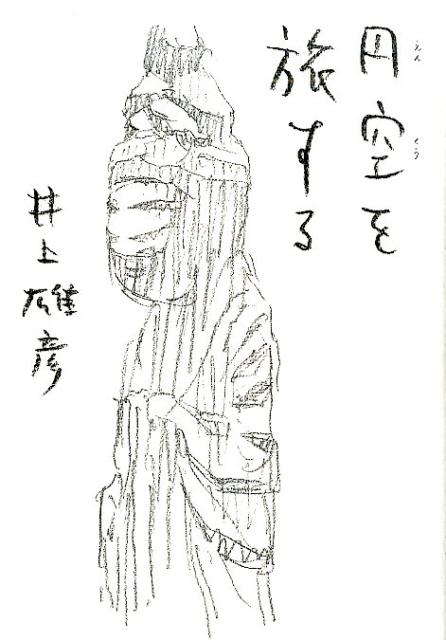 円空を
えんくう
旅する
井上雄彦